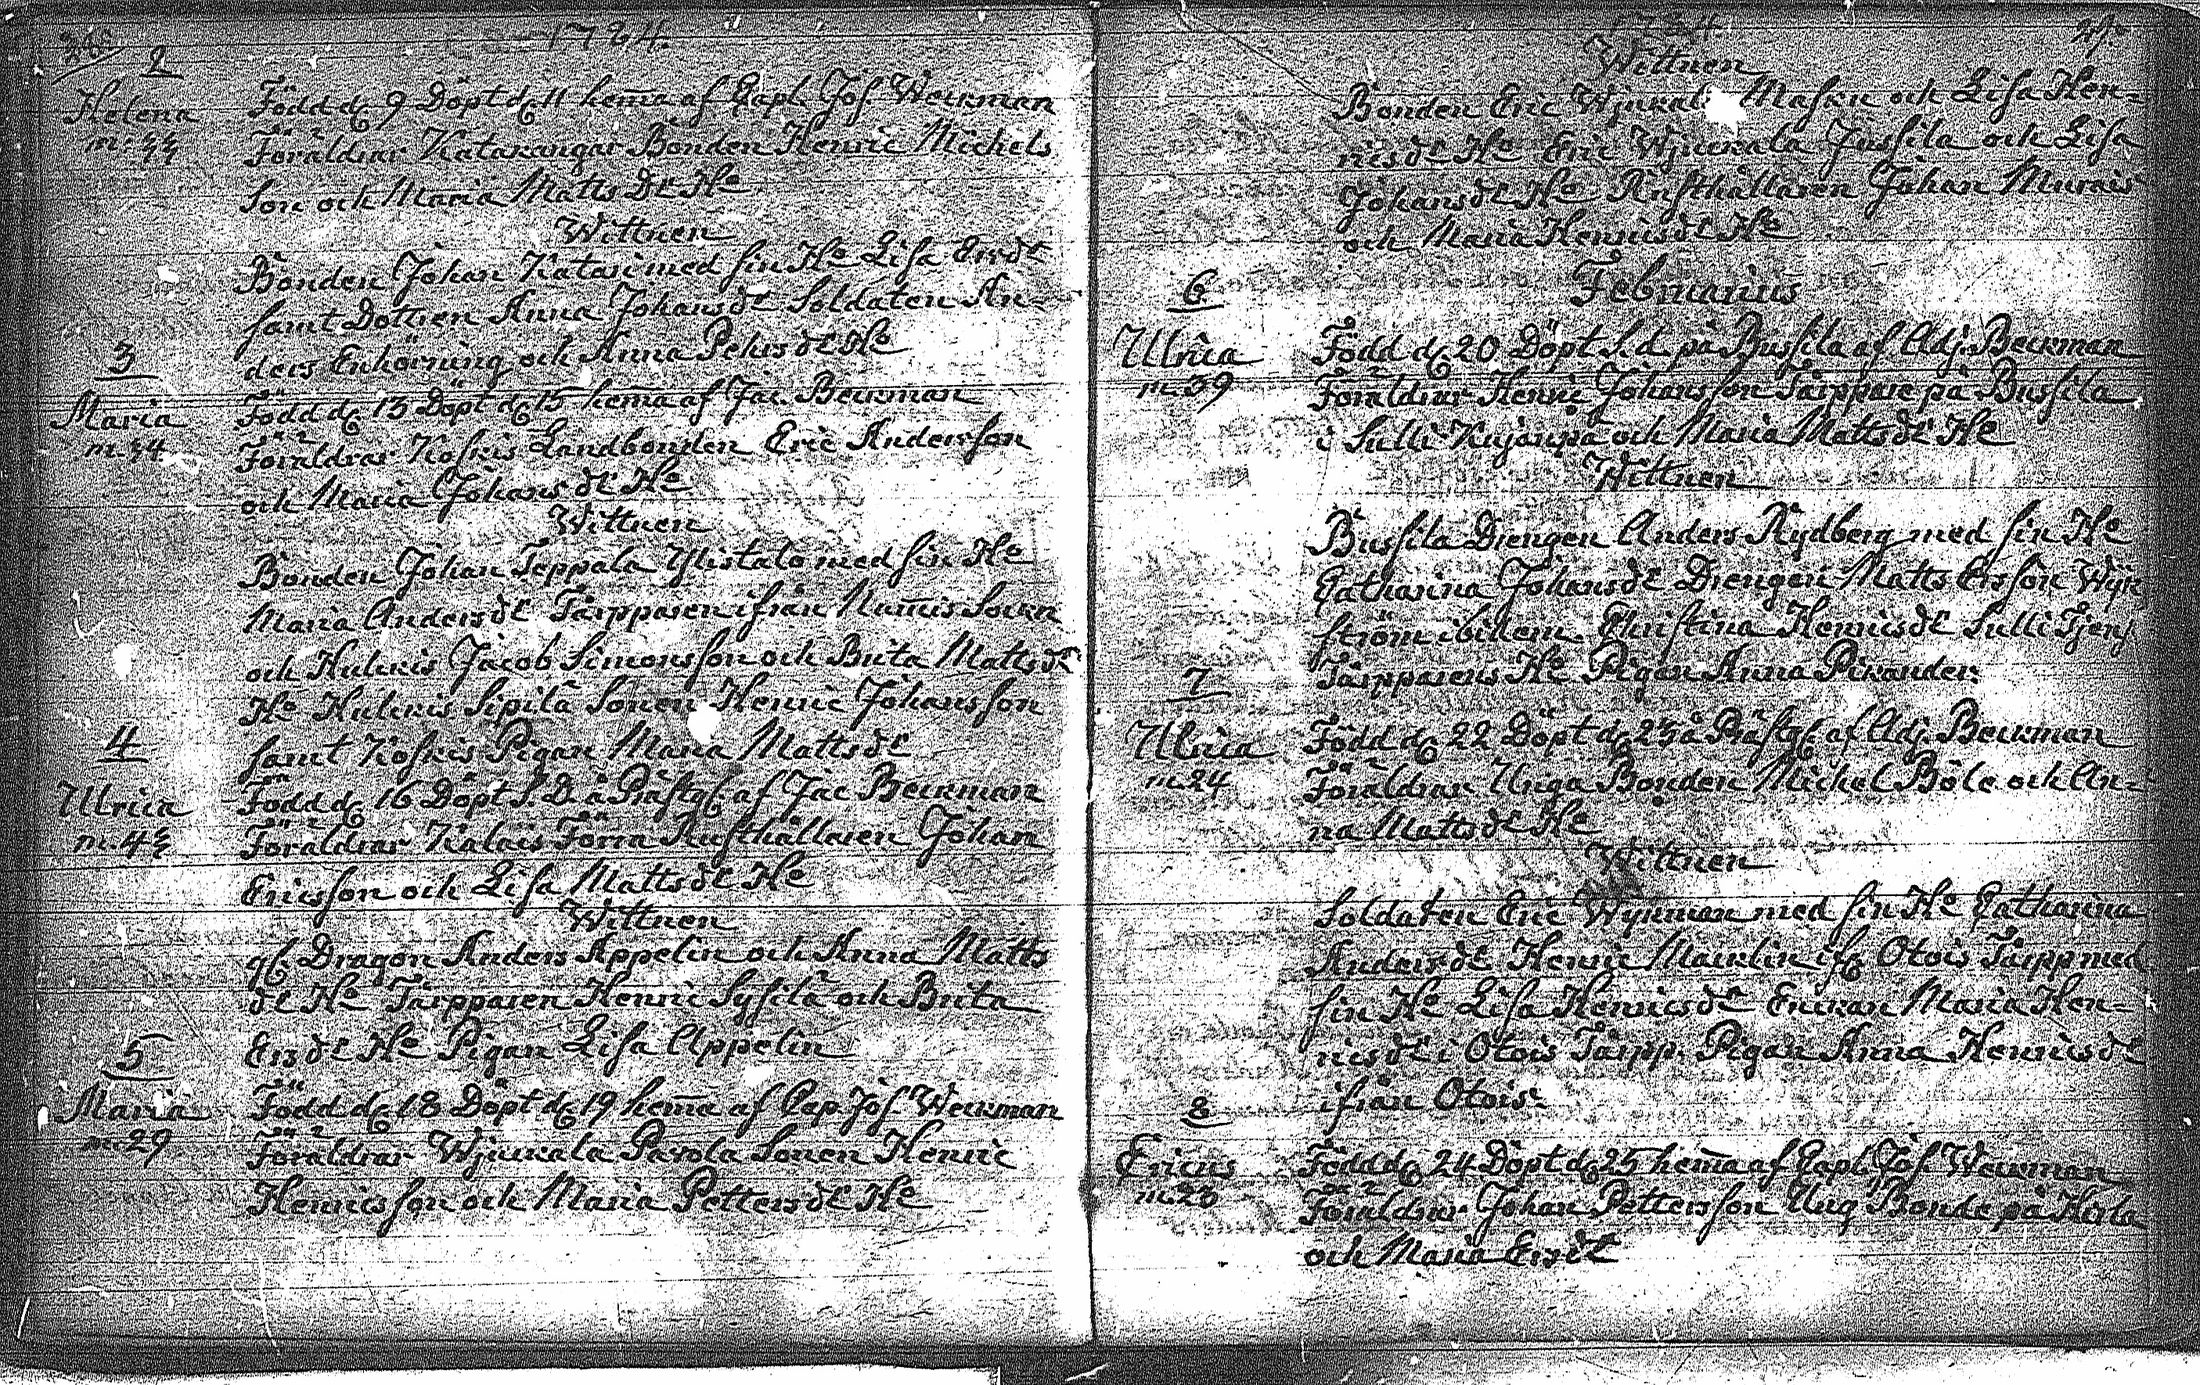 1784.
2
Helena
m: 33
Född d. 9 Döpt d. 11 hem̄a af Capl. Jos. Weckman
Föräldrar Katakangar Bonden Henric Michels
son och Maria Matts dr Ho
Wittnen
Bonden Johan Katari med sin Ho Lisa Ersdr
samt Dottren Anna Johansdr Soldaten An-
ders Enhörning och Anna Pehrsdr Ho
3
Maria
m. 34
Född d. 13 Döpt d. 15 hem̄a af Jac. Beckman
Föräldrar Koskis Landbonden Eric Andersson
och Maria Johans dr Ho
Wittnen
Bonden Johan Seppala Ylistalo med sin Ho
Maria Andersdr Tårpparen ifrån Num̄is Sockn
och Hulckis Jacob Simonsson och Brita Mattsdr
Ho Hulckis Sipilä Sonen Henric Johansson
samt Koskis Pigan Maria Mattsdr
4
Ulrica
m. 43
Född d. 16 Döpt S. D. å Prästg. af Jac Beckman
Föräldrar Kalais Förra Rusthållaren Johan
Ericsson och Lisa Mattsdr Ho
Wittnen
gl. Dragon Anders Appelin och Anna Matts
dr Ho Tårpparen Henric Sysilä och Brita
Ersdr Ho Pigan Lisa Appelin
5
Maria
m. 29
Född d. 18 Döpt d. 19 hem̄a af Cap. Jos. Weckman
Föräldrar Wjuckala Pavola Sonen Henric
Henricsson och Maria Pettersdr Ho
1784
27.
Wittnen
Bonden Eric Wjuckala Masku och Lisa Hen-
ricsdr Ho Eric Wjuckala Jussila och Lisa
Johansdr Ho Rusthållaren Johan Murais
och Maria Henricsdr Ho
Februarius
6
Ulrica
m. 39
Född d. 20 Döpt S. d. på Bussila af Adj. Beckman
Föräldrar Henric Johansson Tårppare på Bussila
i Sulli Kujanpå och Maria Mattsdr Ho
Wittnen
Bussila Drengen Anders Rydberg med sin Ho
Catharina Johansdr Drengen Matts Ersson Wijk
ström ibidem Christina Henricsdr Sulli Tjens
Tårpparens Ho Pigan Anna Pikander.
7
Ulrica
m. 24
Född d. 22 Döpt d. 23 å Prästg. af Adj. Beckman
Föräldrar Unga Bonden Michel Böle och An-
na Mattsdr Ho
Wittnen
Soldaten Eric Wykman med sin Ho Catharina
Andersdr Henric Macklin ifr. Otois Tårpp med
sin Ho Lisa Henricsdr Enckan Maria Hen-
ricsdr i Otois Tårpp. Pigan Anna Henricsdr
ifrån Otois
8
Ericus
m. 23
Född d. 24 Döpt d. 25 hem̄a af Capl. Jos. Weckman
Föräldrar Johan Pettersson Ung Bonde på
och Maria Ersdr